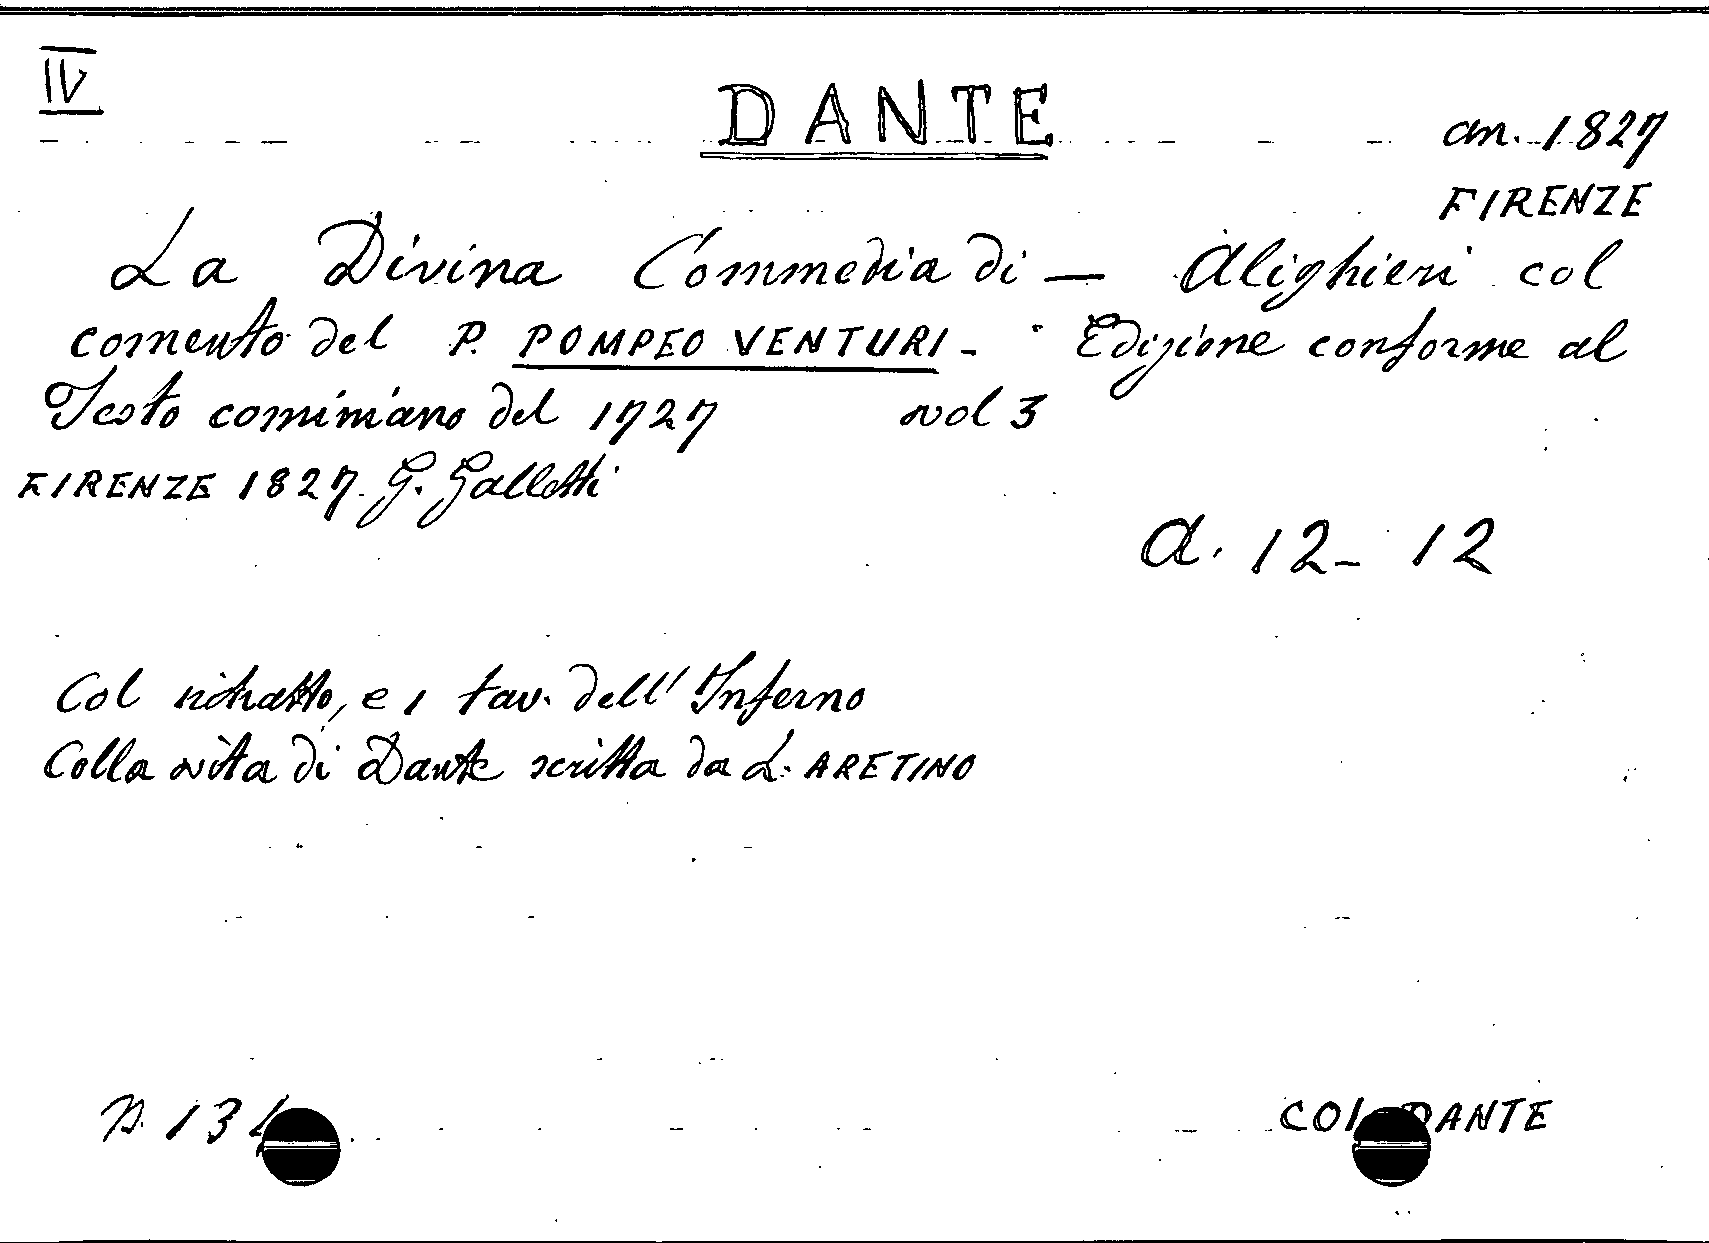 IV
DANTE
an. 1827
FIRENZE
La Divina Commedia di — Alighieri col
comento del P. POMPEO VENTURI - Edizione conforme al
Testo cominiano del 1727 vol 3
FIRENZE 1827. G. Galletti
A. 12- 12
Col ritratto, e 1 tav. dell' Inferno
Colla vita di Dante scritta da L. ARETINO
n. 13
DANTE